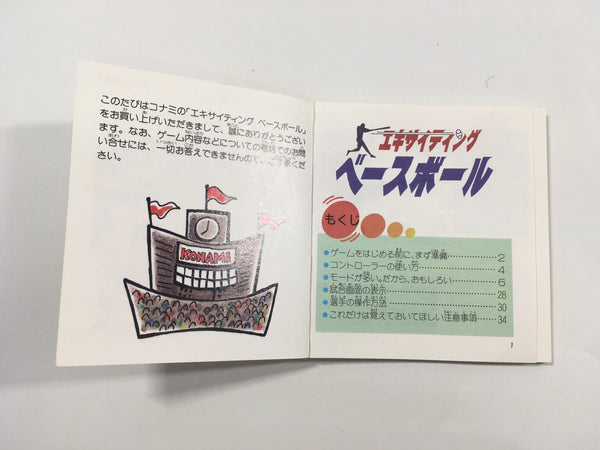 このたびはコナミの「エキサイティング ベースボール」
をお買い上げいただきまして、誠にありがとうござい
ます。なお、ゲーム内容などについての電話でのお問
い合せには、一切お答えできませんので、ご了承くだ
さい。
KONAMI
エキサイティング
ベースボール
もくじ
●ゲームをはじめる前に、まず準備……2
●コントローラーの使い方……4
●モードが多い。だから、おもしろい……6
●試合画面の表示……28
●選手の操作方法……30
●これだけは覚えておいてほしい注意事項……34
1